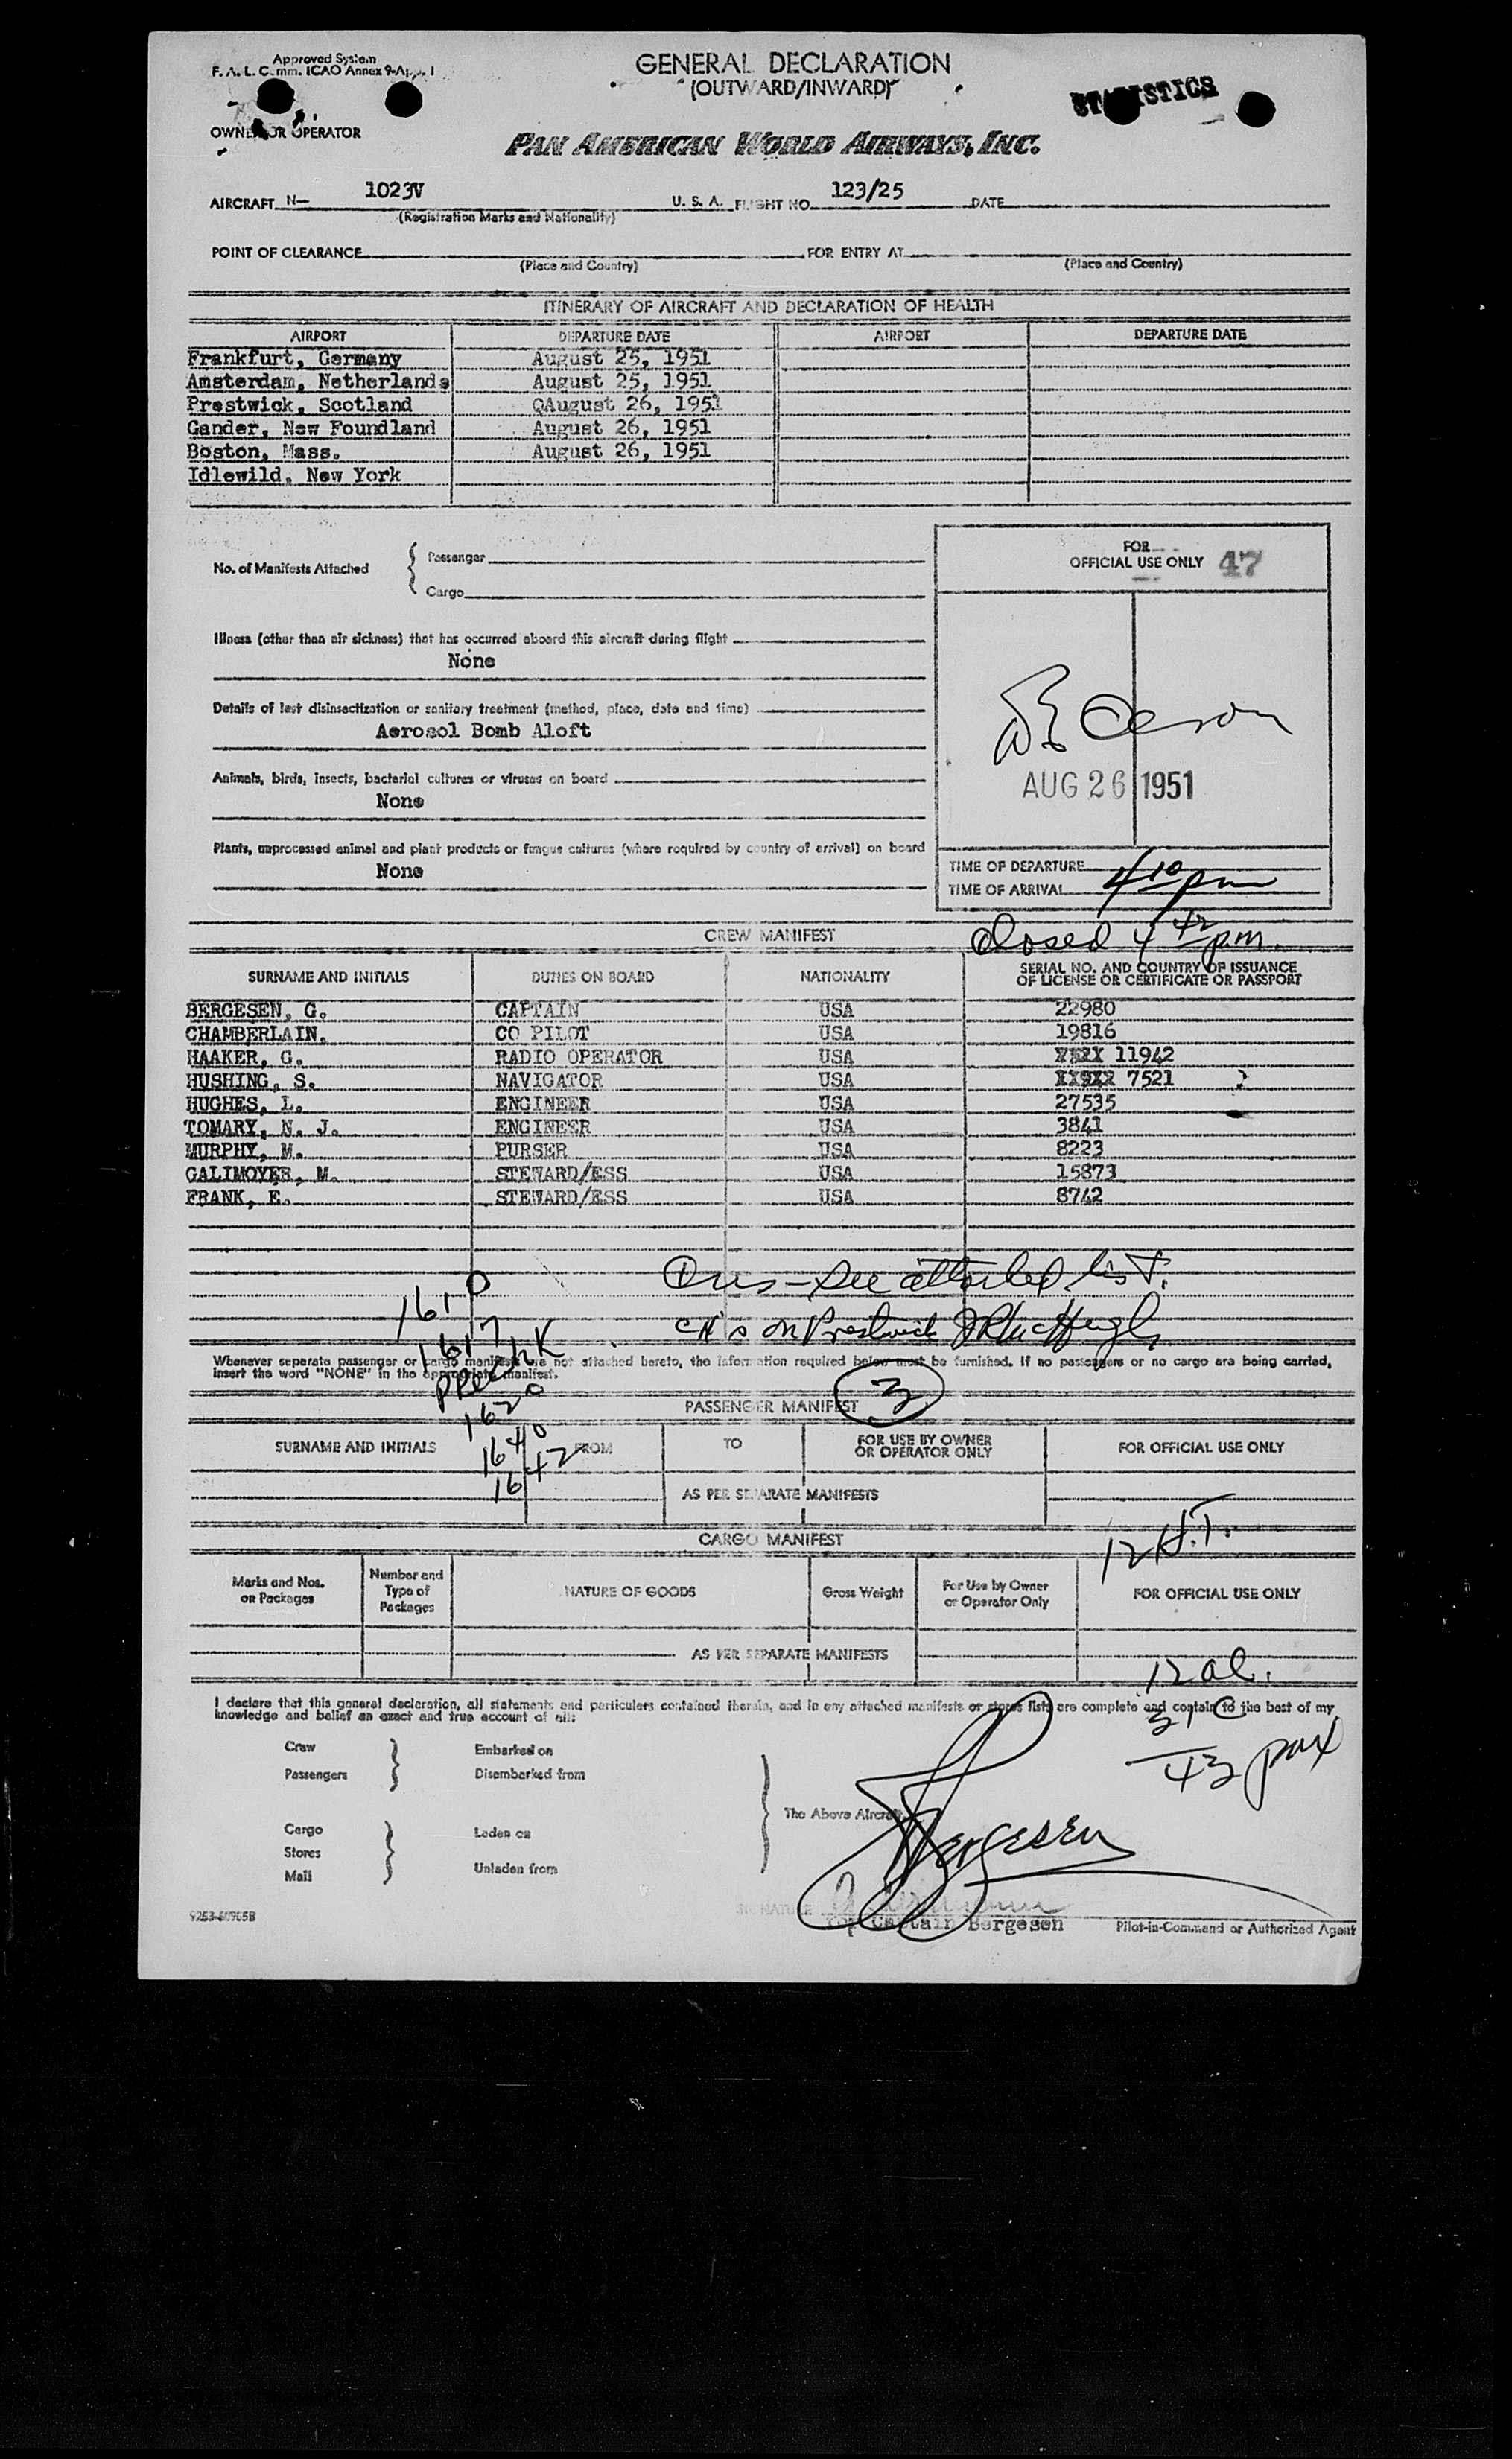 Approved System
F. A. L. Comm. ICAO Annex 9-App. 1
GENERAL DECLARATION
(OUTWARD/INWARD)
STATISTICS
OWNER OR OPERATOR
PAN AMERICAN WORLD AIRWAYS, INC.
AIRCRAFT N— 1023V U. S. A. FLIGHT NO. 123/25 DATE
(Registration Marks and Nationality)
POINT OF CLEARANCE FOR ENTRY AT
(Place and Country) (Place and Country)
ITINERARY OF AIRCRAFT AND DECLARATION OF HEALTH
AIRPORT DEPARTURE DATE AIRPORT DEPARTURE DATE
Frankfurt, Germany August 25, 1951
Amsterdam, Netherlands August 25, 1951
Prestwick, Scotland QAugust 26, 1951
Gander, New Foundland August 26, 1951
Boston, Mass. August 26, 1951
Idlewild, New York
No. of Manifests Attached { Passenger
Cargo
FOR
OFFICIAL USE ONLY 47
Illness (other than air sickness) that has occurred aboard this aircraft during flight
None
Details of last disinsectization or sanitary treatment (method, place, date and time)
Aerosol Bomb Aloft
AUG 26 1951
Animals, birds, insects, bacterial cultures or viruses on board
None
Plants, unprocessed animal and plant products or fungus cultures (where required by country of arrival) on board
None
TIME OF DEPARTURE
TIME OF ARRIVAL 4 10 pm
closed 4 42 pm.
CREW MANIFEST
SURNAME AND INITIALS DUTIES ON BOARD NATIONALITY SERIAL NO. AND COUNTRY OF ISSUANCE OF LICENSE OR CERTIFICATE OR PASSPORT
BERGESEN, G. CAPTAIN USA 22980
CHAMBERLAIN. CO PILOT USA 19816
HAAKER, G. RADIO OPERATOR USA 11942
HUSHING, S. NAVIGATOR USA 7521
HUGHES, L. ENGINEER USA 27535
TOMARY, N. J. ENGINEER USA 3841
MURPHY, M. PURSER USA 8223
GALIMOYER, M. STEWARD/ESS USA 15873
FRANK, E. STEWARD/ESS USA 8742
see attached list.
1610
1617
on Prestwick
Whenever separate passenger or cargo manifests are not attached hereto, the information required below must be furnished. If no passengers or no cargo are being carried,
insert the word "NONE" in the appropriate manifest.
1620
PASSENGER MANIFEST 3
SURNAME AND INITIALS FROM TO FOR USE BY OWNER OR OPERATOR ONLY FOR OFFICIAL USE ONLY
1640
1642
AS PER SEPARATE MANIFESTS
CARGO MANIFEST
12 H.T.
Marks and Nos. on Packages Number and Type of Packages NATURE OF GOODS Gross Weight For Use by Owner or Operator Only FOR OFFICIAL USE ONLY
AS PER SEPARATE MANIFESTS
12 al.
I declare that this general declaration, all statements and particulars contained therein, and in any attached manifests or stores lists are complete and contain to the best of my
knowledge and belief an exact and true account of all:
31 C
43 pax
Crew
Passengers
Embarked on
Disembarked from
The Above Aircraft
Cargo
Stores
Mail
Laden on
Unladen from
Bergesen
SIGNATURE
for Captain Bergesen Pilot-in-Command or Authorized Agent
9253-60905B